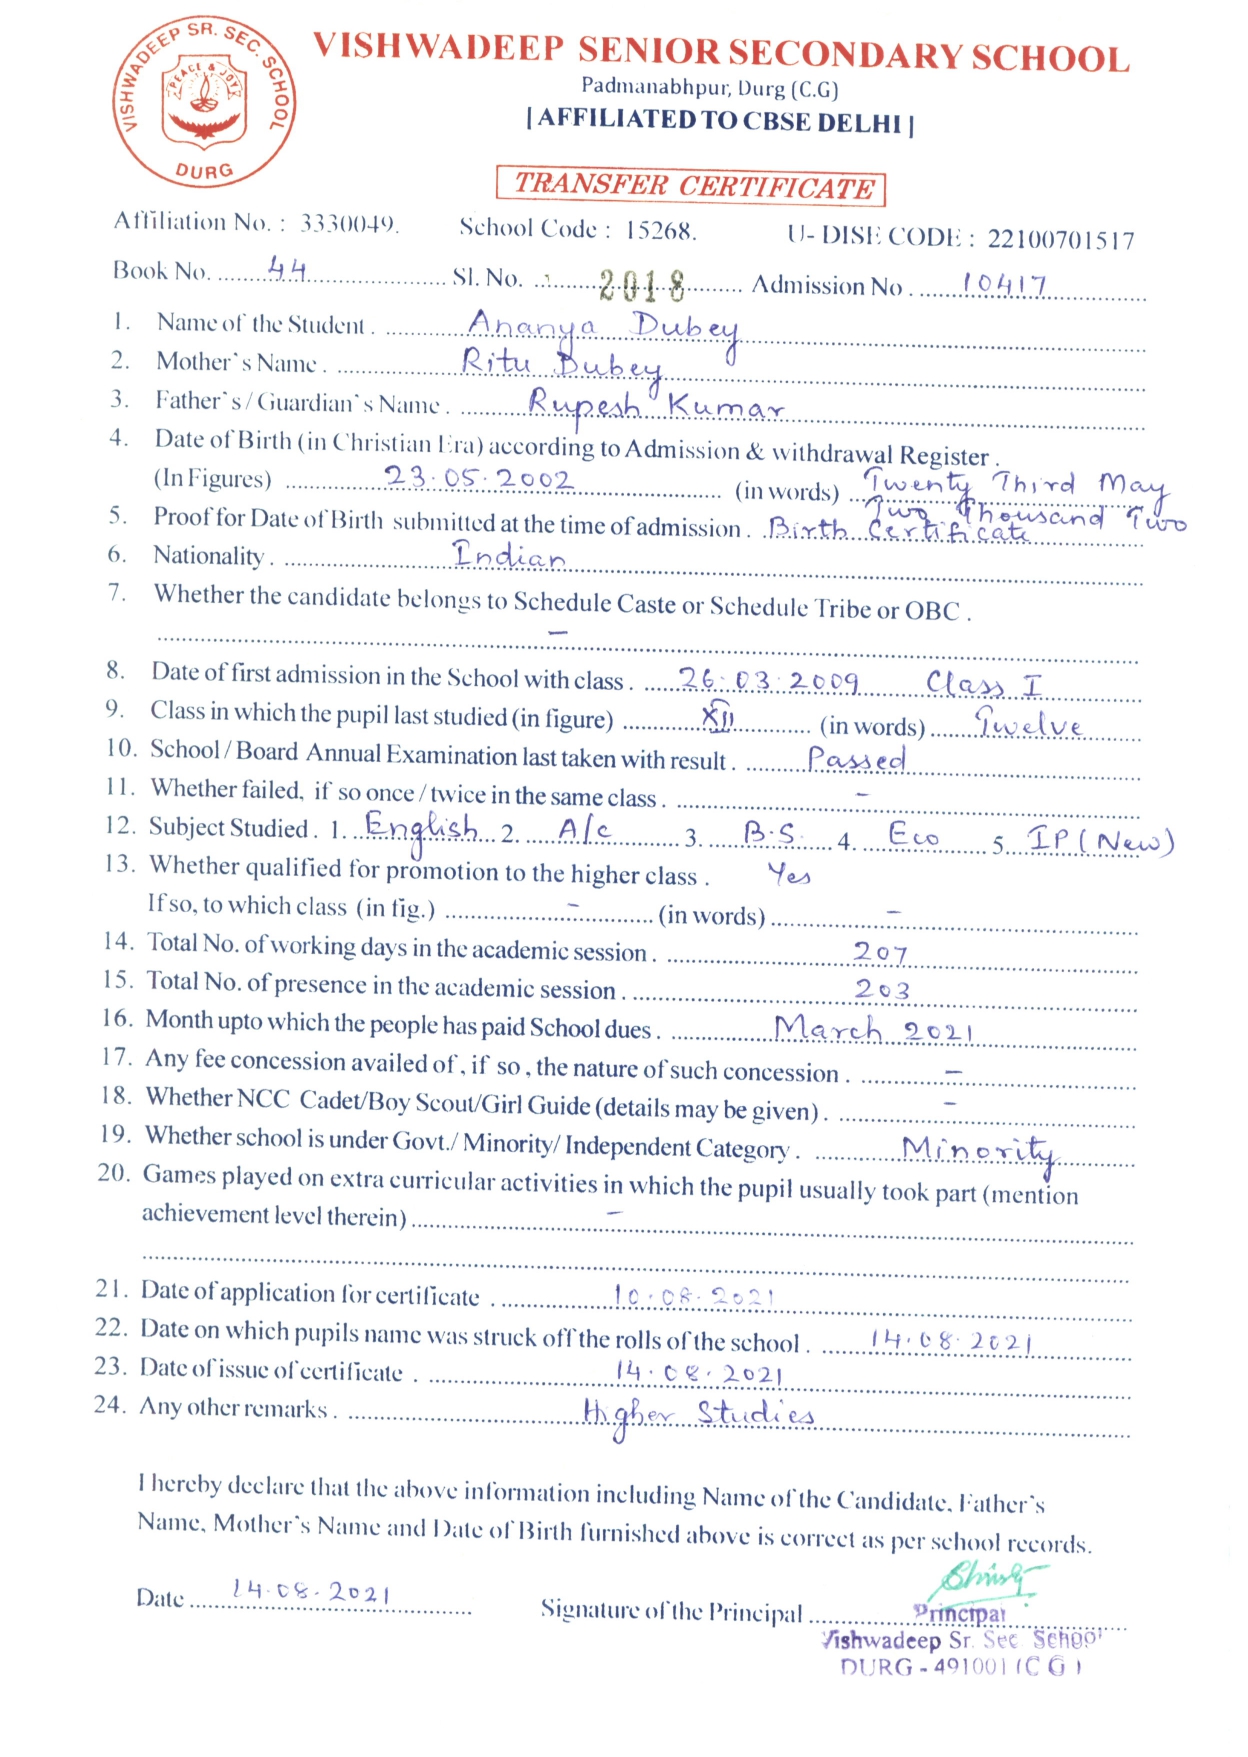 VISHWADEEP SR. SEC. SCHOOL
PEACE & JOY
DURG
VISHWADEEP SENIOR SECONDARY SCHOOL
Padmanabhpur, Durg (C.G)
| AFFILIATED TO CBSE DELHI |
TRANSFER CERTIFICATE
Affiliation No. : 3330049. School Code : 15268. U- DISE CODE : 22100701517
Book No. 44 Sl. No. 2018 Admission No . 10417
1. Name of the Student . Ananya Dubey
2. Mother`s Name . Ritu Dubey
3. Father`s / Guardian`s Name . Rupesh Kumar
4. Date of Birth (in Christian Era) according to Admission & withdrawal Register .
(In Figures) 23.05.2002 (in words) Twenty Third May
Two Thousand Two
5. Proof for Date of Birth submitted at the time of admission . Birth Certificate
6. Nationality . Indian
7. Whether the candidate belongs to Schedule Caste or Schedule Tribe or OBC .
–
8. Date of first admission in the School with class . 26.03.2009 Class I
9. Class in which the pupil last studied (in figure) XII (in words) Twelve
10. School / Board Annual Examination last taken with result . Passed
11. Whether failed, if so once / twice in the same class . –
12. Subject Studied . 1. English 2. A/c 3. B.S. 4. Eco 5. IP (New)
13. Whether qualified for promotion to the higher class . Yes
If so, to which class (in fig.) – (in words) –
14. Total No. of working days in the academic session . 207
15. Total No. of presence in the academic session . 203
16. Month upto which the people has paid School dues . March 2021
17. Any fee concession availed of , if so , the nature of such concession . –
18. Whether NCC Cadet/Boy Scout/Girl Guide (details may be given) . –
19. Whether school is under Govt./ Minority/ Independent Category . Minority
20. Games played on extra curricular activities in which the pupil usually took part (mention
achievement level therein) –
21. Date of application for certificate . 10.08.2021
22. Date on which pupils name was struck off the rolls of the school . 14.08.2021
23. Date of issue of certificate . 14.08.2021
24. Any other remarks . Higher Studies
I hereby declare that the above information including Name of the Candidate, Father`s
Name, Mother`s Name and Date of Birth furnished above is correct as per school records.
Date 14.08.2021 Signature of the Principal
Principal
Vishwadeep Sr. Sec. School
DURG - 491001 (C G )